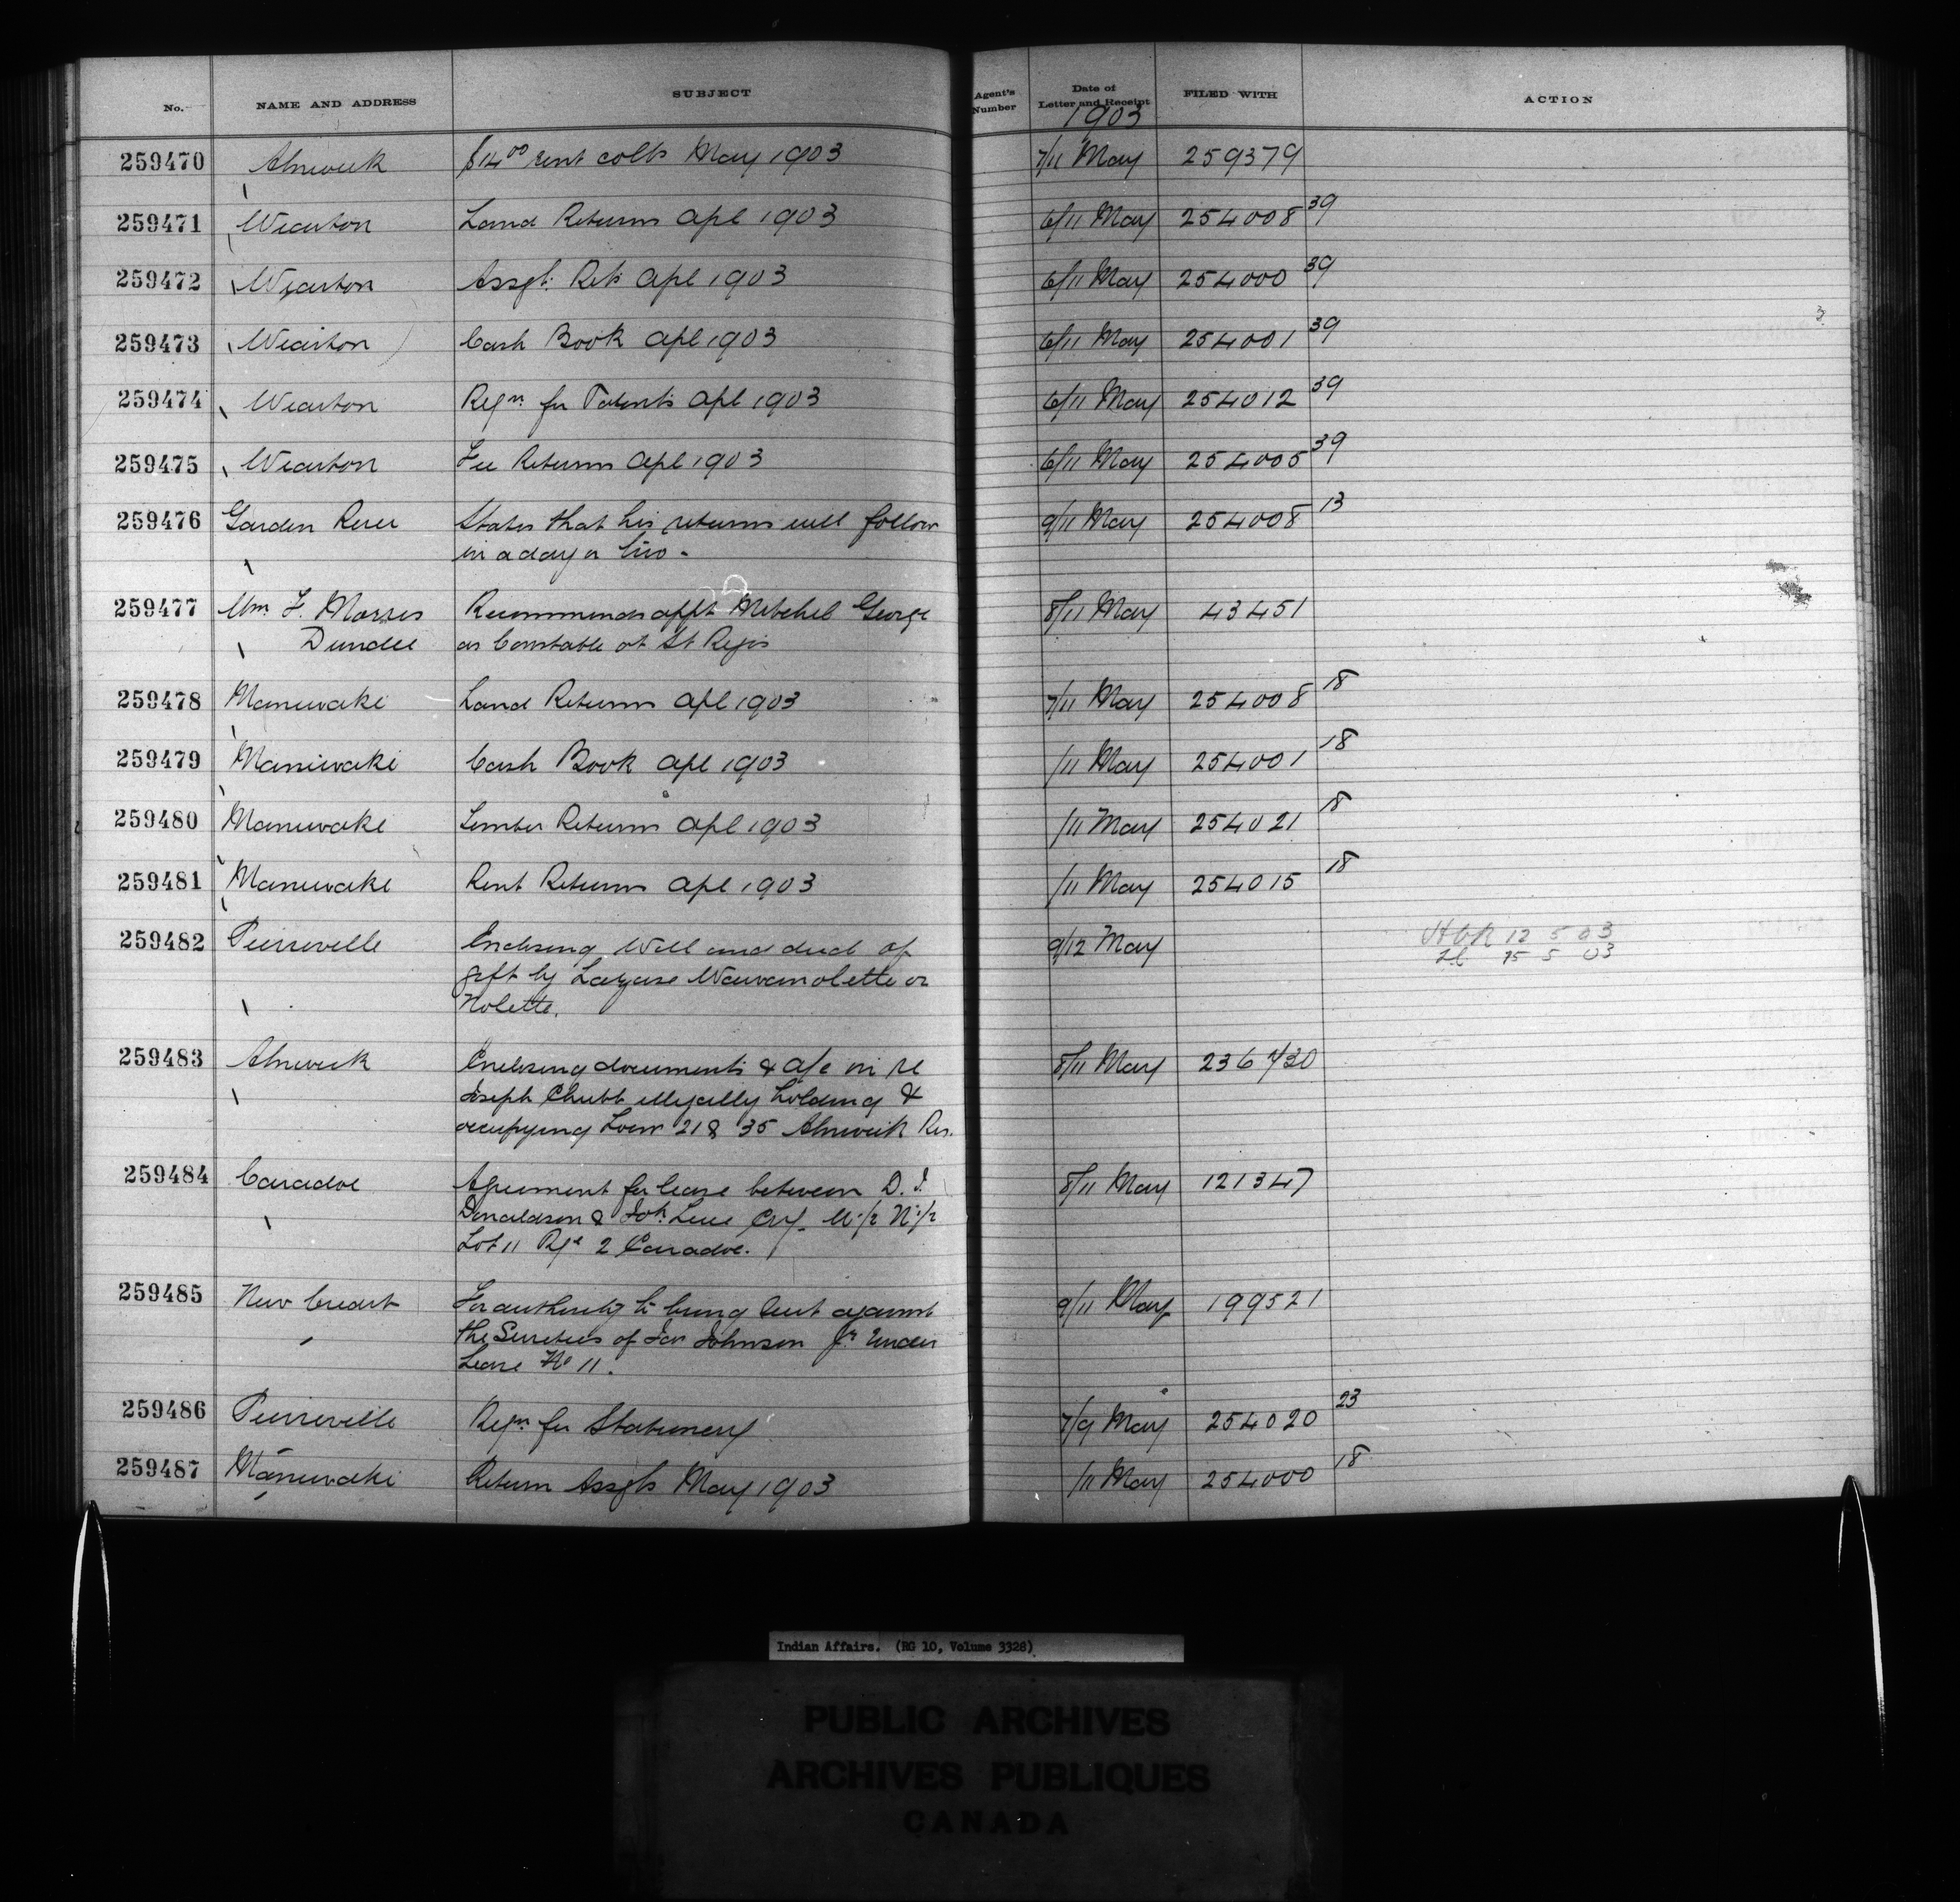 No. NAME AND ADDRESS SUBJECT Agent's Number Date of Letter and Receipt FILED WITH ACTION
1903
259470 Alnwick $14.00 rent colls May 1903 7/11 May 259379
259471 Wiarton Land Returns Apl 1903 6/11 May 254008 39
259472 Wiarton Assgt. Rets Apl 1903 6/11 May 254000 39
259473 Wiarton Cash Book Apl 1903 6/11 May 254001 39
259474 Wiarton Reqn for Patents Apl 1903 6/11 May 254012 39
259475 Wiarton Fee Returns Apl 1903 6/11 May 254005 39
259476 Garden River States that his returns will follow 9/11 May 254008 13
in a day or two -
259477 Wm. F. Recommends appt Mitchel George 8/11 May 43451
Dundee as Constable at St Regis
259478 Maniwaki Land Returns Apl 1903 7/11 May 254008 18
259479 Maniwaki Cash Book Apl 1903 /11 May 254001 18
259480 Maniwaki Timber Returns Apl 1903 /11 May 254021 18
259481 Maniwaki Rent Returns Apl 1903 /11 May 254015 18
259482 Pierreville Enclosing Will and deed of 9/12 May 12 5 03
gift by Lazare Wawanolette or 15 5 03
Nolette.
259483 Alnwick Enclosing documents & a/c in re 8/11 May 236430
Joseph Chubb illegally holding &
occupying 21 & 35 Alnwick Res.
259484 Caradoc Agreement for lease between D. J. 8/11 May 121347
Donaldson & W 1/2 N 1/2
Lot 11 Rge 2 Caradoc.
259485 New Credit For authority to bring suit against 9/11 May 199521
the Sureties of Johnson Jr. under
Lease No 11.
259486 Pierreville Reqn for Stationery 7/9 May 254020 23
259487 Maniwaki Return Assgts May 1903 /11 May 254000 18
Indian Affairs. (RG 10, Volume 3328)
PUBLIC ARCHIVES
ARCHIVES PUBLIQUES
CANADA